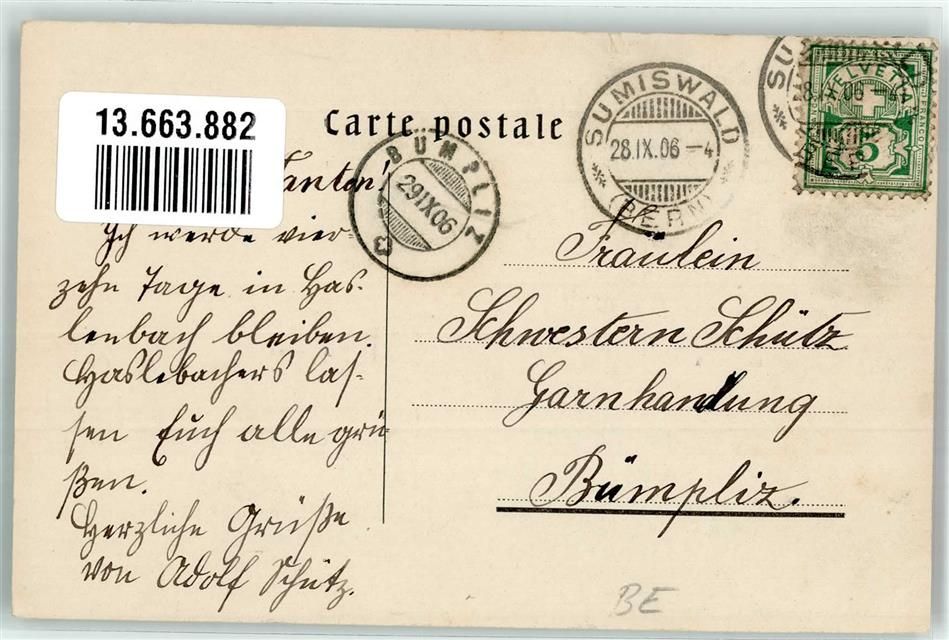 13.663.882
Carte postale
BÜMPLIZ
29 IX 06
SUMISWALD
28.IX.06 - 4
(BERN)
SU
28.IX.06 - 4
HELVETIA
5
Tanten!
Ich werde vier-
zehn Tage in Has-
lenbach bleiben.
Haslebachers las-
sen Euch alle grü-
ßen.
Herzliche Grüße
von Adolf Schütz.
Fräulein
Schwestern Schütz
Garnhandlung
Bümpliz.
BE